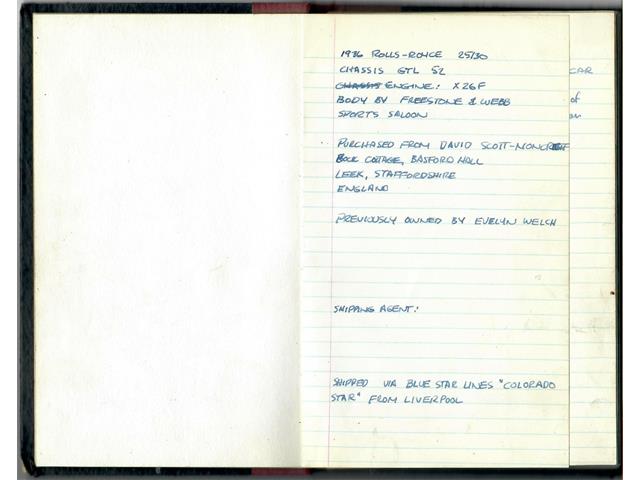 1936 ROLLS-ROYCE 25/30
CHASSIS GTL 52
CHASSIS ENGINE: X26F
BODY BY FREESTONE & WEBB
SPORTS SALOON
PURCHASED FROM DAVID SCOTT-MONCRIEFF
ROCK COTTAGE, BASFORD HALL
LEEK, STAFFORDSHIRE
ENGLAND
PREVIOUSLY OWNED BY EVELYN WELCH
SHIPPING AGENT:
SHIPPED VIA BLUE STAR LINES "COLORADO
STAR" FROM LIVERPOOL
CAR
of